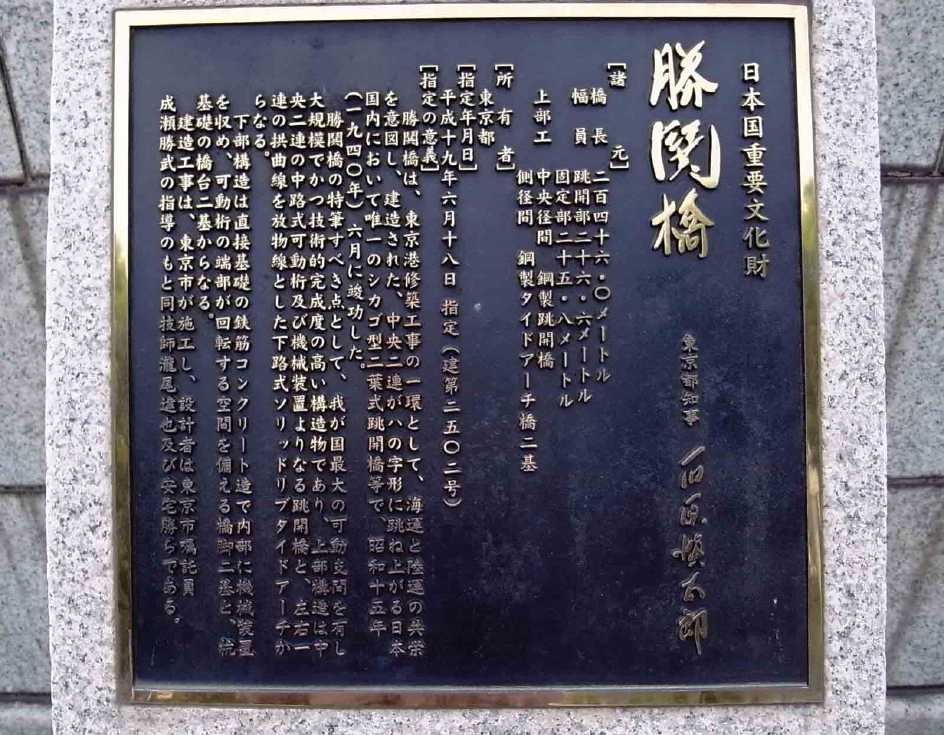 日本国重要文化財
勝鬨橋
東京都知事 石原慎太郎
[諸元]
橋長 二百四十六・〇メートル
幅員 跳開部二十六・六メートル
固定部二十五・八メートル
上部工 中央径間 鋼製跳開橋
側径間 鋼製タイドアーチ橋二基
[所有者]
東京都
[指定年月日]
平成十九年六月十八日 指定(建第二五〇二号)
[指定の意義]
勝鬨橋は、東京港修築工事の一環として、海運と陸運の共栄
を意図し、建造された、中央二連がハの字形に跳ね上がる日本
国内において唯一のシカゴ型二葉式跳開橋等で、昭和十五年
(一九四〇年)六月に竣功した。
勝鬨橋の特筆すべき点として、我が国最大の可動支間を有し
大規模でかつ技術的完成度の高い構造物であり、上部構造は中
央二連の中路式可動桁及び機械装置よりなる跳開橋と、左右一
連の拱曲線を放物線とした下路式ソリッドリブタイドアーチか
らなる。
下部構造は直接基礎の鉄筋コンクリート造で内部に機械装置
を収め、可動桁の端部が回転する空間を備える橋脚二基と、杭
基礎の橋台二基からなる。
建造工事は、東京市が施工し、設計者は東京市嘱託員
成瀬勝武の指導のもと同技師瀧尾達也及び安宅勝らである。